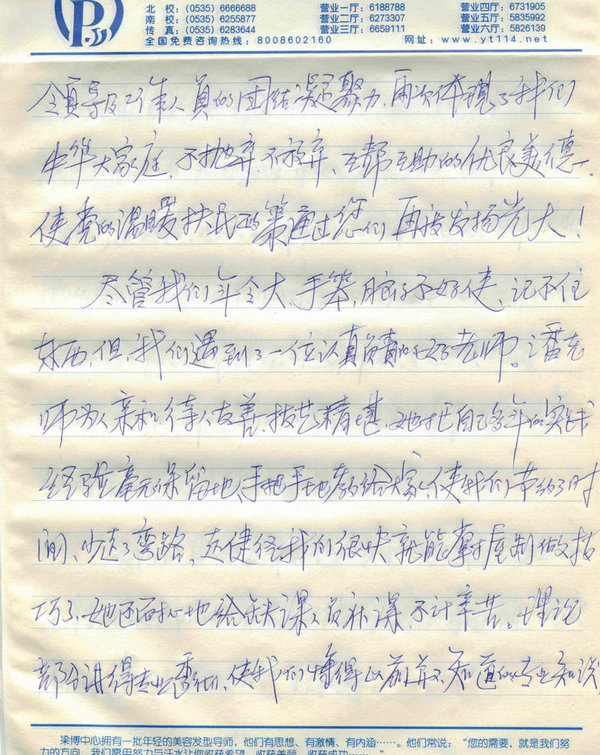 北 校：(0535) 6666688 营业一厅：6188788 营业四厅：6731905
南 校：(0535) 6255877 营业二厅：6273307 营业五厅：5835992
传 真：(0535) 6283644 营业三厅：6659111 营业六厅：5826139
全国免费咨询热线：8008602160 网址：www.yt114.net
领导及工作人员的团结凝聚力，再次体现了我们
中华大家庭，不抛弃、不放弃、互帮互助的优良美德。
使党的温暖扶民政策通过您们再被发扬光大！
尽管我们年令大、手笨，脑子不好使、记不住
东西，但，我们遇到了一位认真负责的好老师。潘老
师为人亲和、待人友善，技艺精堪，她把自己多年的实践
经验毫无保留地、手把手地教给大家，使我们节约了时
间、少走了弯路，这使我们很快就能掌握制做技
巧了，她还耐心地给缺课人员补课，不计辛苦。理论
部分讲得专业透彻，使我们懂得以前不知道的专业知识
梁博中心拥有一批年轻的美容发型导师，他们有思想、有激情、有内涵……。他们常说：“您的需要，就是我们努